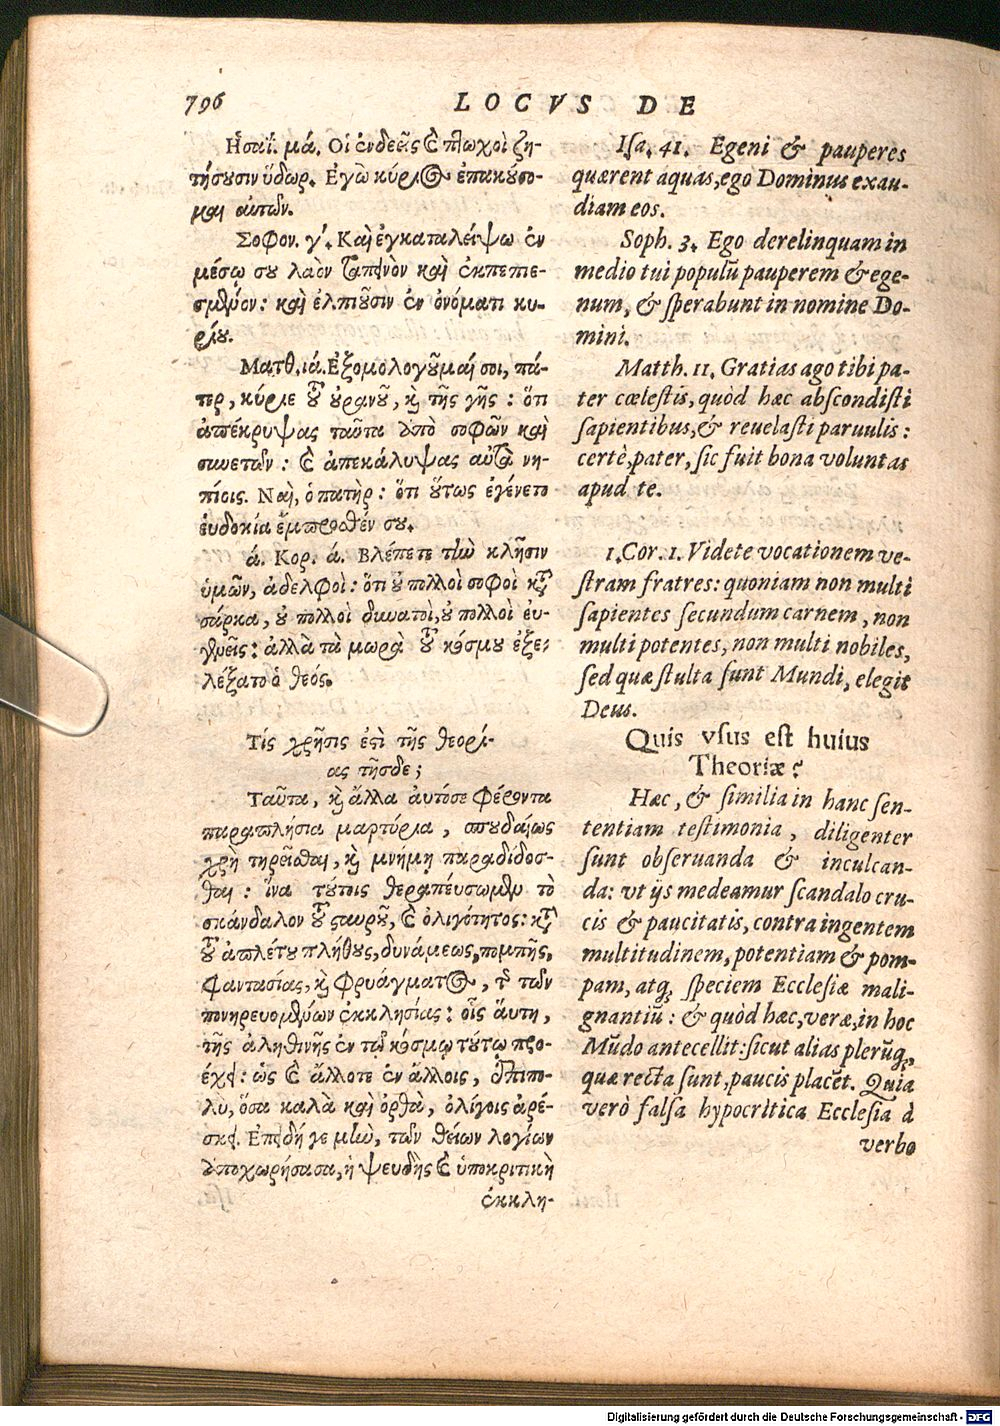 796
LOCVS DE
Ἡσαΐ. μά. Οἱ ἐνδεεῖς & πτωχοὶ ζη-
τήσουσιν ὕδωρ. Ἐγὼ κύριος ἐπακούσο-
μαι αὐτῶν.
Σοφον. γ'. Καὶ ἐγκαταλείψω ἐν
μέσῳ σου λαὸν ταπεινὸν καὶ ἐκπεπιε-
σμένον: καὶ ἐλπιοῦσιν ἐν ὀνόματι κυ-
ρίου.
Ματθ. ιά. Ἐξομολογοῦμαί σοι, πά-
τερ, κύριε τοῦ οὐρανοῦ, καὶ τῆς γῆς: ὅτι
ἀπέκρυψας ταῦτα ἀπὸ σοφῶν καὶ
συνετῶν: & ἀπεκάλυψας αὐτὰ νη-
πίοις. Ναὶ, ὁ πατὴρ: ὅτι οὕτως ἐγένετο
ἐυδοκία ἔμπροσθέν σου.
ά. Κορ. ά. Βλέπετε τὴν κλῆσιν
ὑμῶν, ἀδελφοὶ: ὅτι οὐ πολλοὶ σοφοὶ κατὰ
σάρκα, οὐ πολλοὶ δυνατοὶ, οὐ πολλοὶ ἐυ-
γενεῖς: ἀλλὰ τὰ μωρὰ τοῦ κόσμου ἐξε-
λέξατο ὁ θεός.
Τίς χρῆσις ἐστὶ τῆς θεορί-
ας τῆσδε;
Ταῦτα, καὶ ἄλλα ἀυτόσε φέροντα
παραπλήσια μαρτύρια, σπουδαίως
χρὴ τηρεῖσθαι, καὶ μνήμῃ παραδίδοσ-
θαι: ἵνα τούτοις θεραπέυσωμεν τὸ
σκάνδαλον τοῦ σταυροῦ, & ὀλιγότητος: κατὰ
τοῦ ἀπλέτου πλήθους, δυνάμεως, πομπῆς,
φαντασίας, καὶ φρυάγματος, τῆς τῶν
πονηρευομένων ἐκκλησίας: οἷς ἅυτη,
τῆς ἀληθινῆς ἐν τῷ κόσμῳ τούτῳ προ-
έχει: ὡς & ἄλλοτε ἐν ἄλλοις, ἐπιπο-
λὺ, ὅσα καλὰ καὶ ὀρθὰ, ὀλίγοις ἀρέ-
σκει. Ἐπειδή γε μὴν, τῶν θείων λογίων
ἀποχωρήσασα, ἡ ψευδὴς & ὑποκριτικὴ
ἐκκλη-
Isa. 41. Egeni & pauperes
quærent aquas, ego Dominus exau-
diam eos.
Soph. 3. Ego derelinquam in
medio tui populū pauperem & ege-
num, & sperabunt in nomine Do-
mini.
Matth. 11. Gratias ago tibi pa-
ter cœlestis, quòd hæc abscondisti
sapientibus, & reuelasti paruulis:
certè, pater, sic fuit bona voluntas
apud te.
1. Cor. 1. Videte vocationem ve-
stram fratres: quoniam non multi
sapientes secundum carnem, non
multi potentes, non multi nobiles,
sed quæ stulta sunt Mundi, elegit
Deus.
Quis vsus est huius
Theoriæ?
Hæc, & similia in hanc sen-
tentiam testimonia, diligenter
sunt obseruanda & inculcan-
da: vt ijs medeamur scandalo cru-
cis & paucitatis, contra ingentem
multitudinem, potentiam & pom-
pam, atq; speciem Ecclesiæ mali-
gnantiū: & quòd hæc, veræ, in hoc
Mūdo antecellit: sicut alias plerūq;,
quæ recta sunt, paucis placēt. Quia
verò falsa hypocritica Ecclesia à
verbo
Digitalisierung gefördert durch die Deutsche Forschungsgemeinschaft - DFG